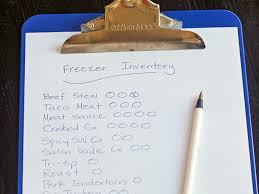 Freezer Inventory
Beef Stew OOOO
Taco Meat OOO
Meat sauce OOOO
Cooked Cx OOO
Spicy SW Cx OO
Salsa Verde Cx OO
Tri-tip O
Roast O
Pork Tenderloin O